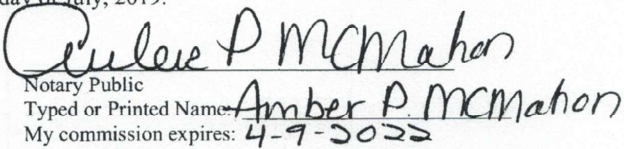 day of July, 2019.
P McMahon
Notary Public
Typed or Printed Name: Amber P. McMahon
My commission expires: 4-9-2022